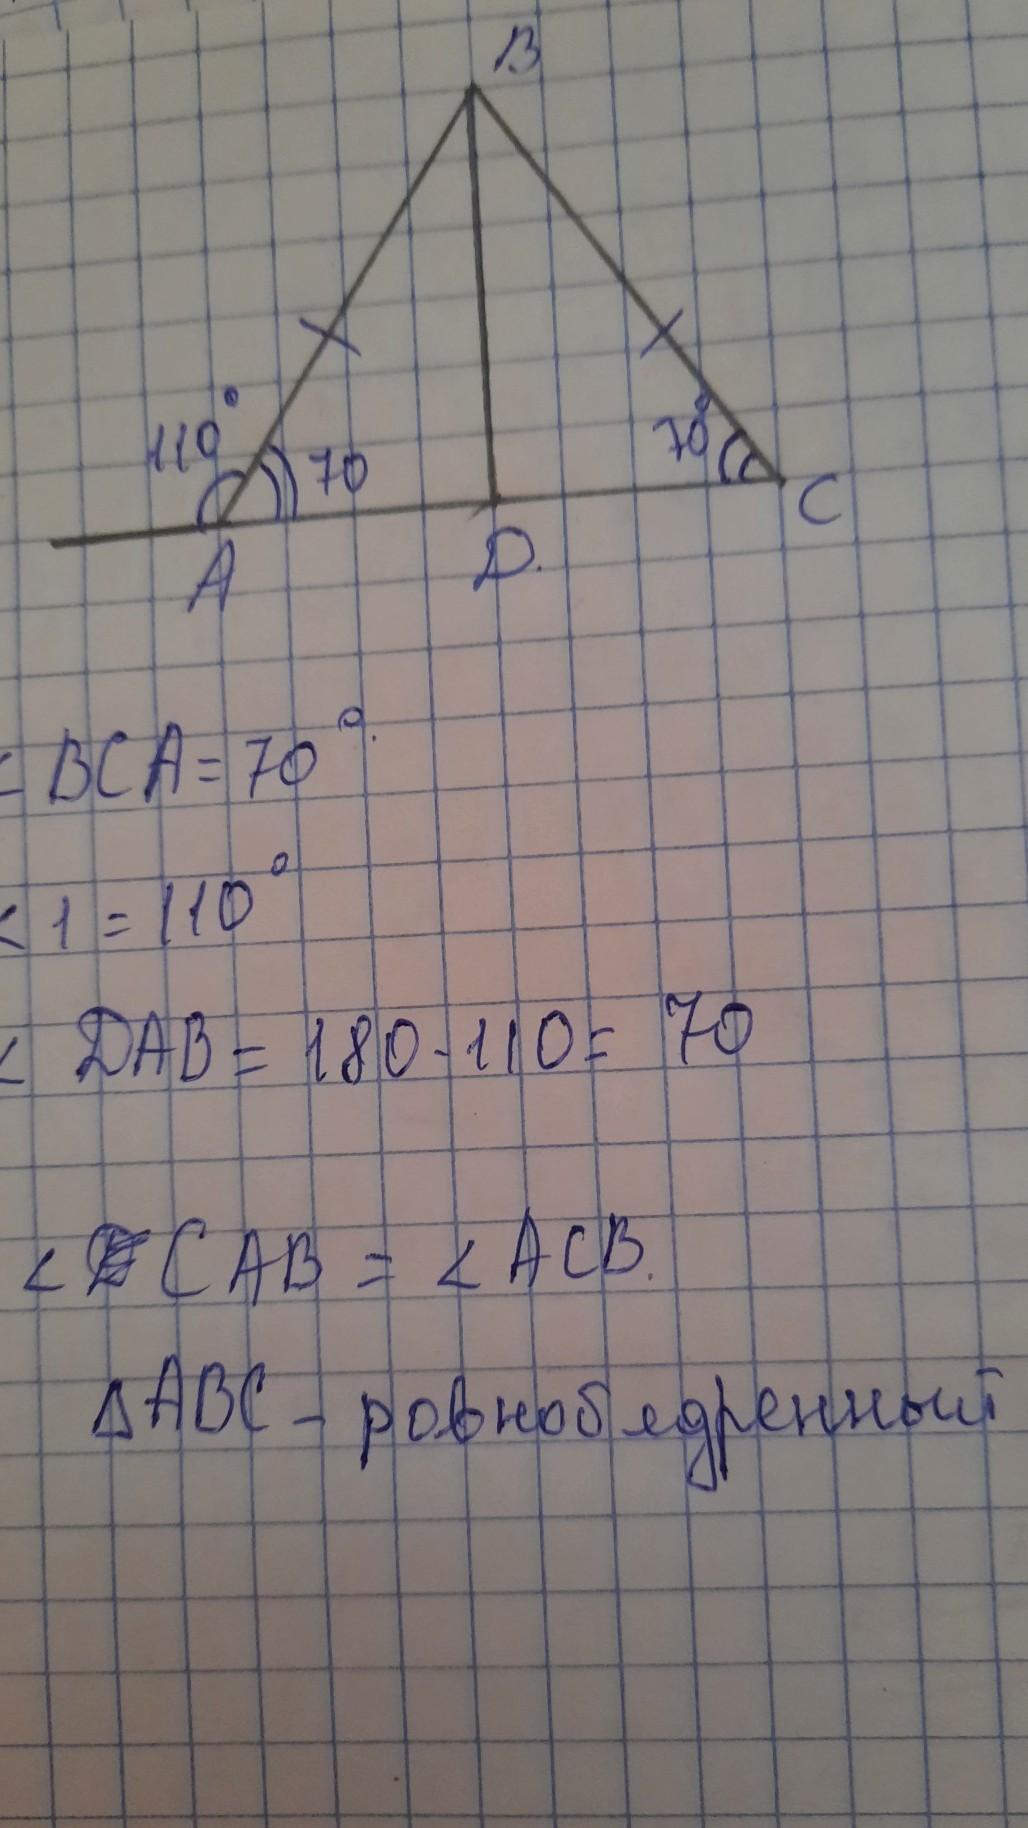 B
110° 70 70°
A D. C
< BCA = 70°.
< 1 = 110°
< DAB = 180 - 110 = 70
< CAB = < ACB.
Δ ABC - ровнобедренный